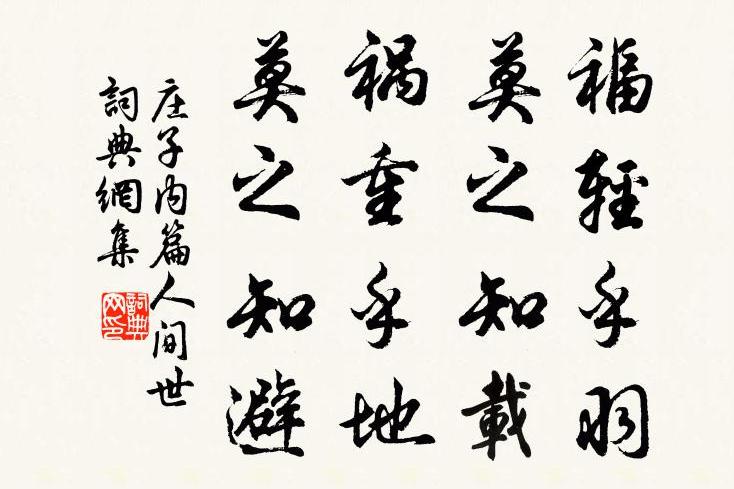 福輕乎羽
莫之知載
祸重乎地
莫之知避
庄子内篇人间世
詞典網集
詞典网印